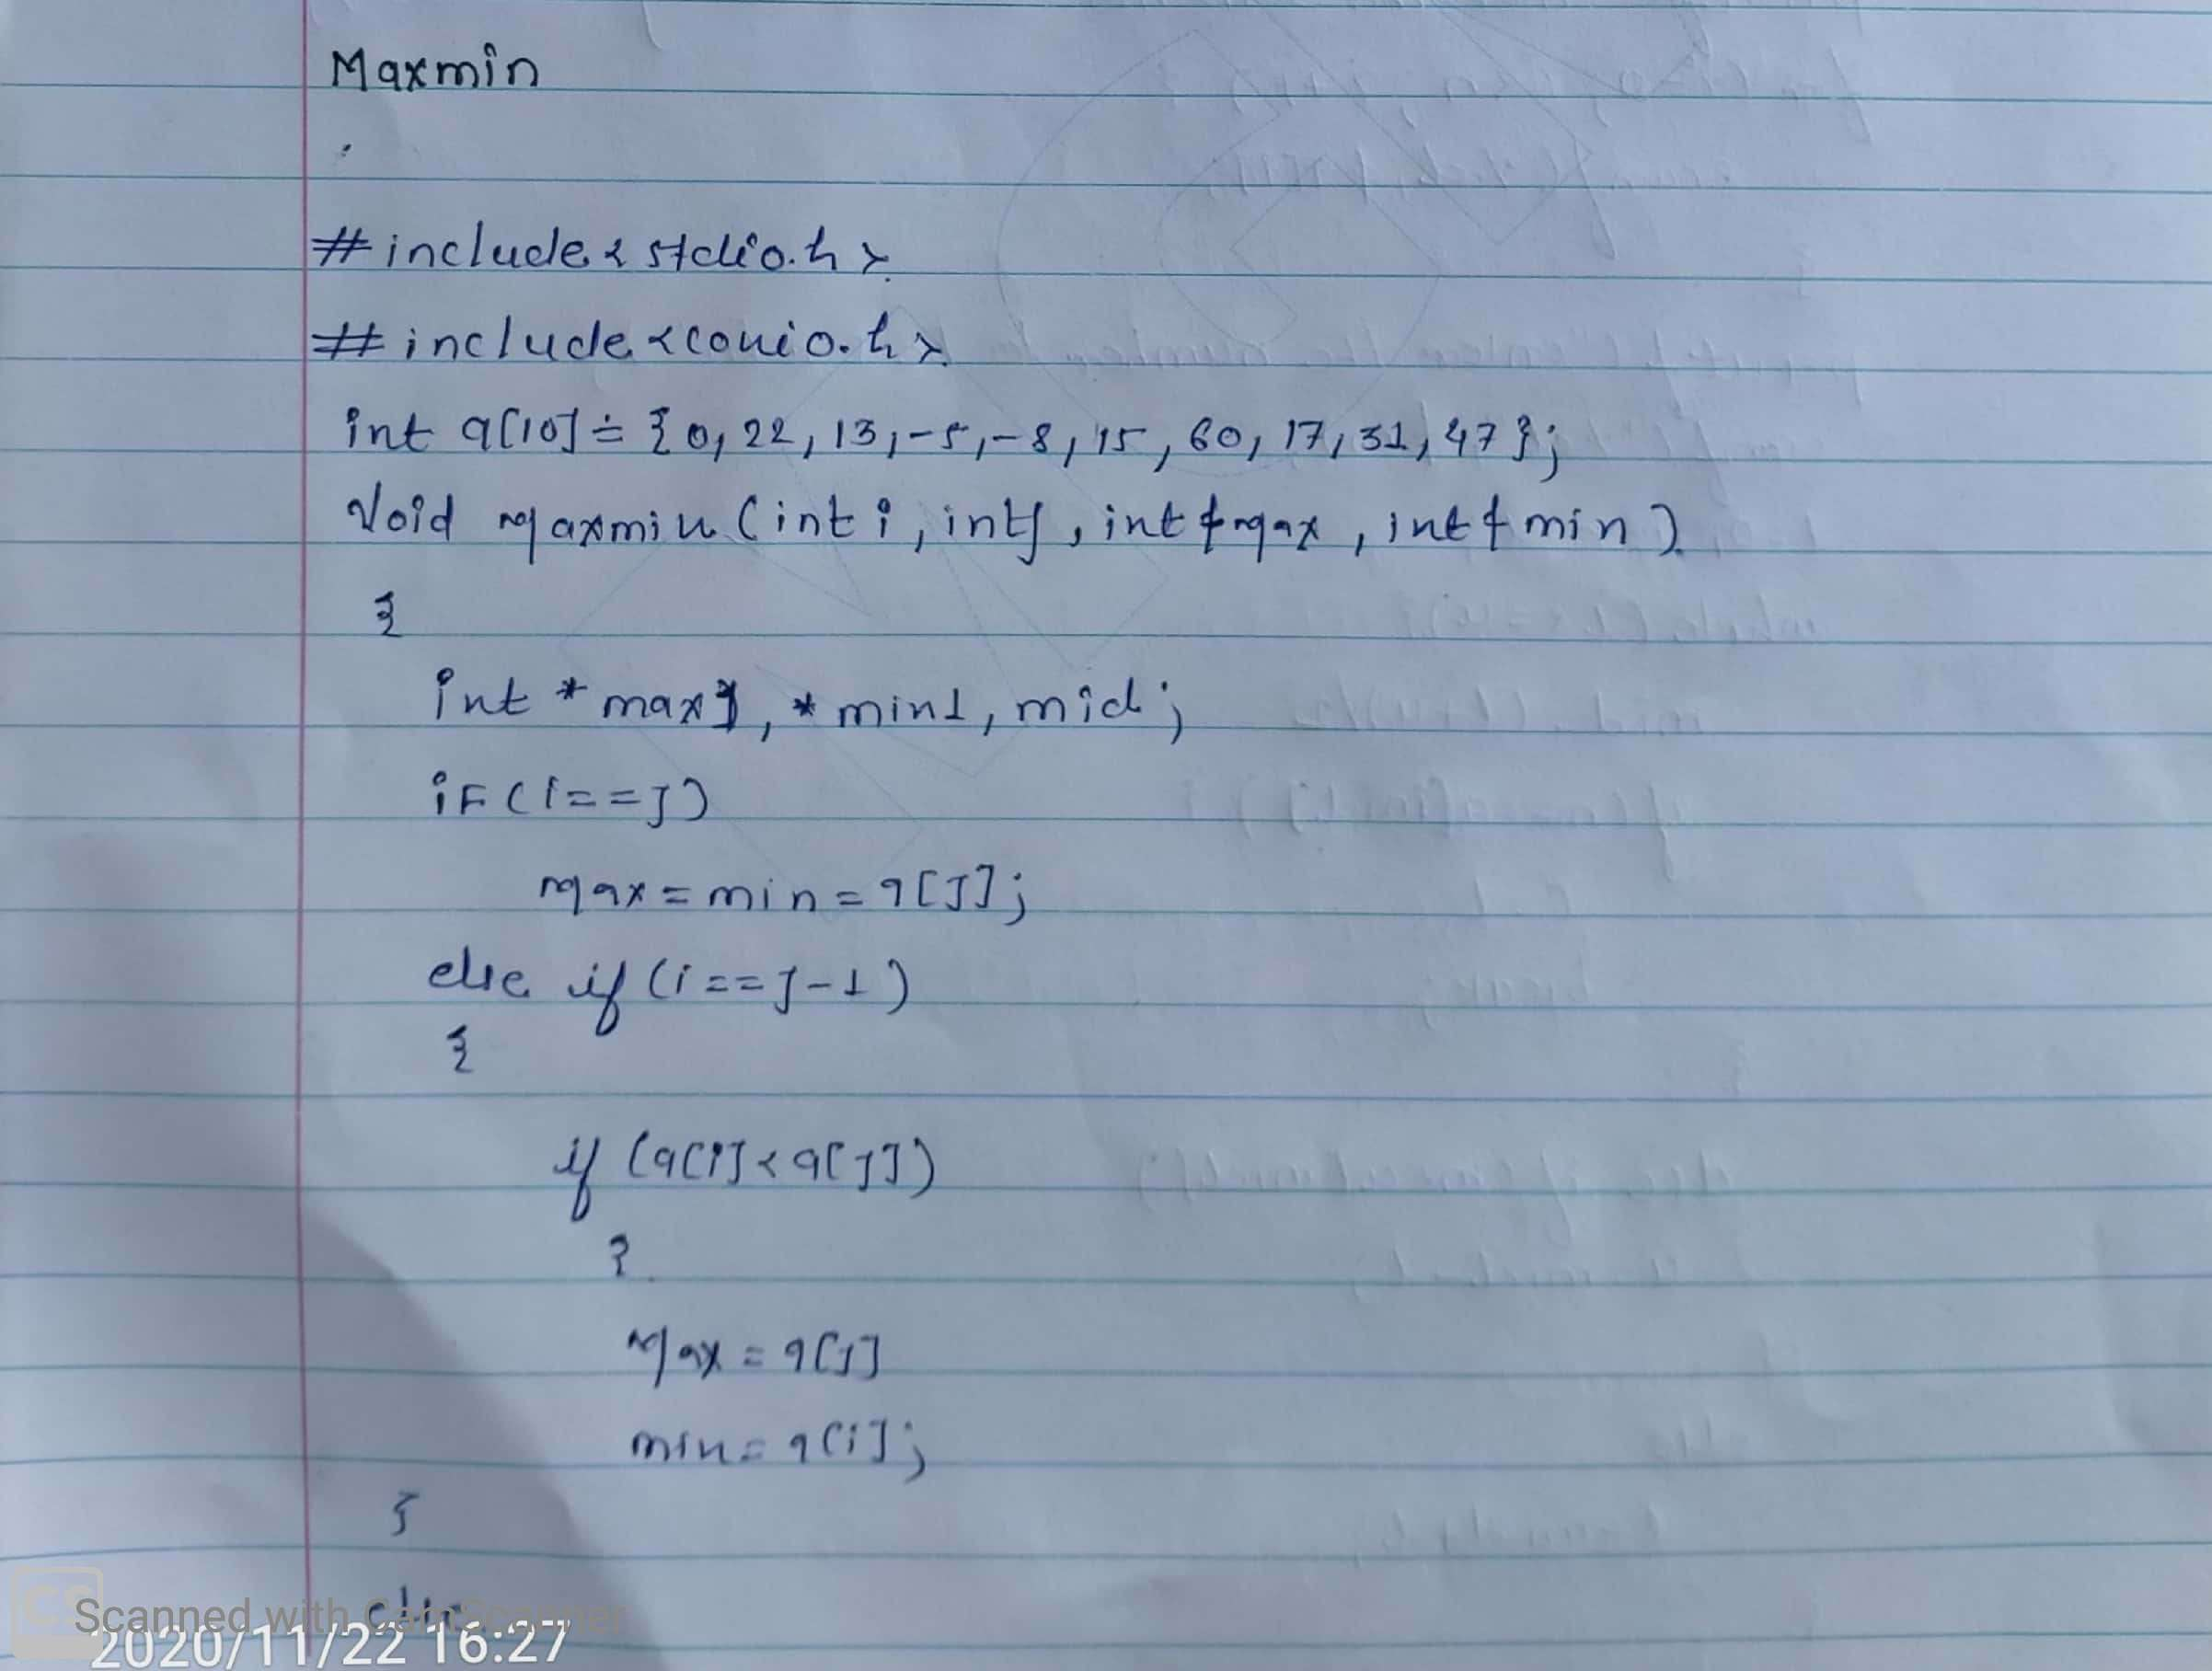 Maxmin
#include<stdio.h>
#include<conio.h>
int a[10]={0,22,13,-5,-8,15,60,17,31,47};
Void maxmin(int i, int j, int &max, int & min)
{
int *max1, *min1, mid;
iF(i==j)
max=min=a[J];
else if(i==j-1)
{
if (a[i]<a[j])
{
Max=a[j]
min=a[i];
}
else
Scanned with CamScanner
2020/11/22 16:27